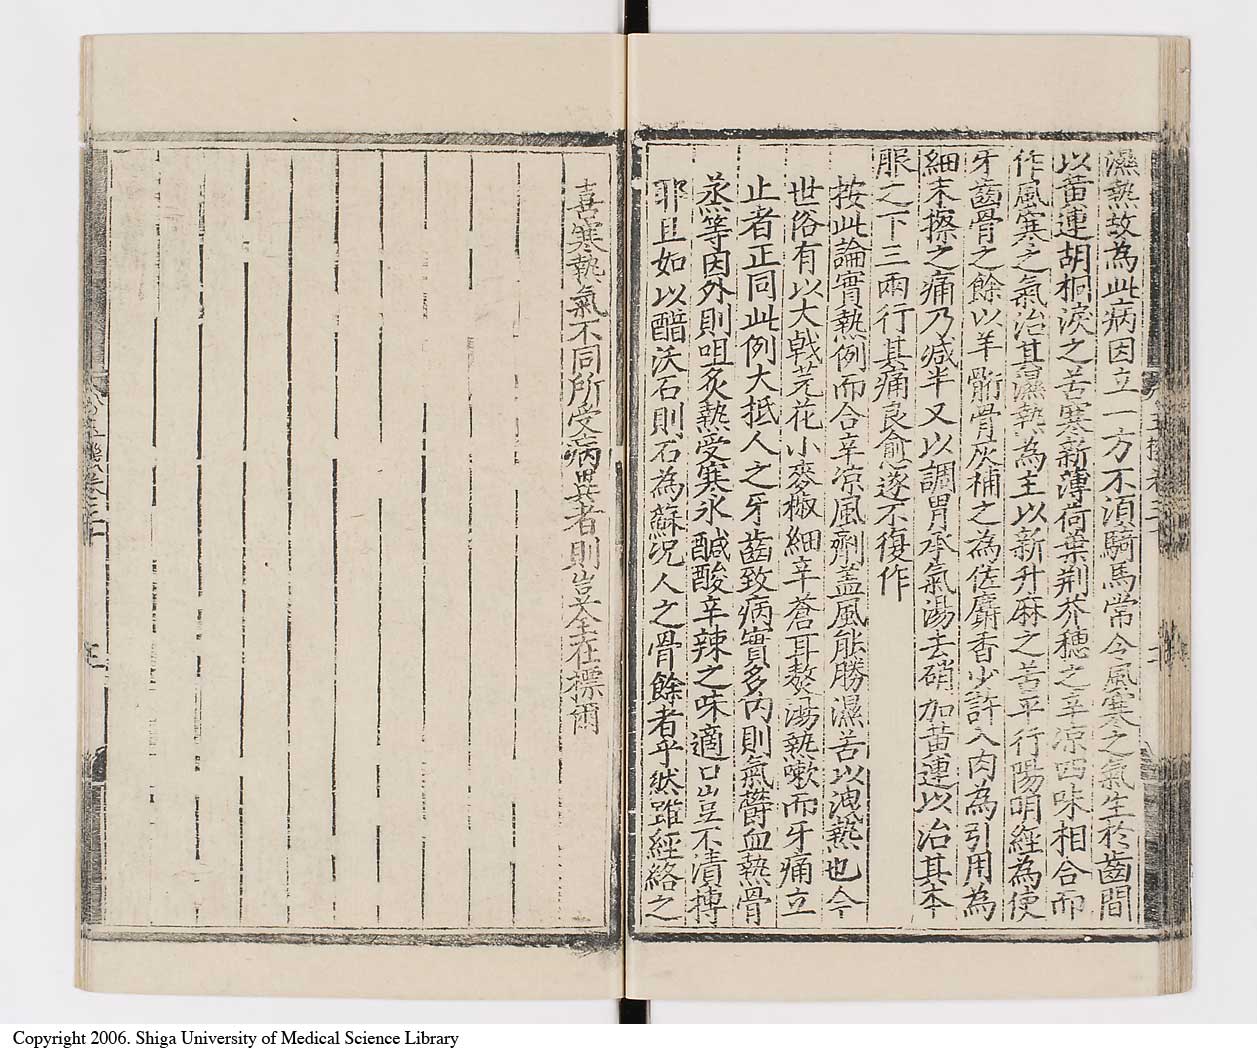 濕熱故為此病因立一方不須騎馬常令風寒之氣生於齒間
以黃連胡桐淚之苦寒新薄荷葉荆芥穗之辛凉四味相合而
作風寒之氣治其濕熱為主以新升麻之苦平行陽明經為使
牙齒骨之餘以羊骱骨灰補之為佐麝香少許入肉為引用為
細末擦之痛乃减半又以調胃承氣湯去硝加黃連以治其本
服之下三兩行其痛良愈遂不復作
按此論實熱例而合辛凉風劑盖風能勝濕苦以洩熱也今
世俗有以大戟芫花小麥椒細辛蒼耳熬湯熱嗽而牙痛立
止者正同此例大抵人之牙齒致病實多內則氣欝血熱骨
蒸等因外則咀炙熱受寒氷鹹酸辛辣之味適口豈不漬摶
耶且如以醋沃石則石為蘇况人之骨餘者乎然雖經絡之
喜寒熱氣不同所受病異者則豈全在摽爾
Copyright 2006. Shiga University of Medical Science Library